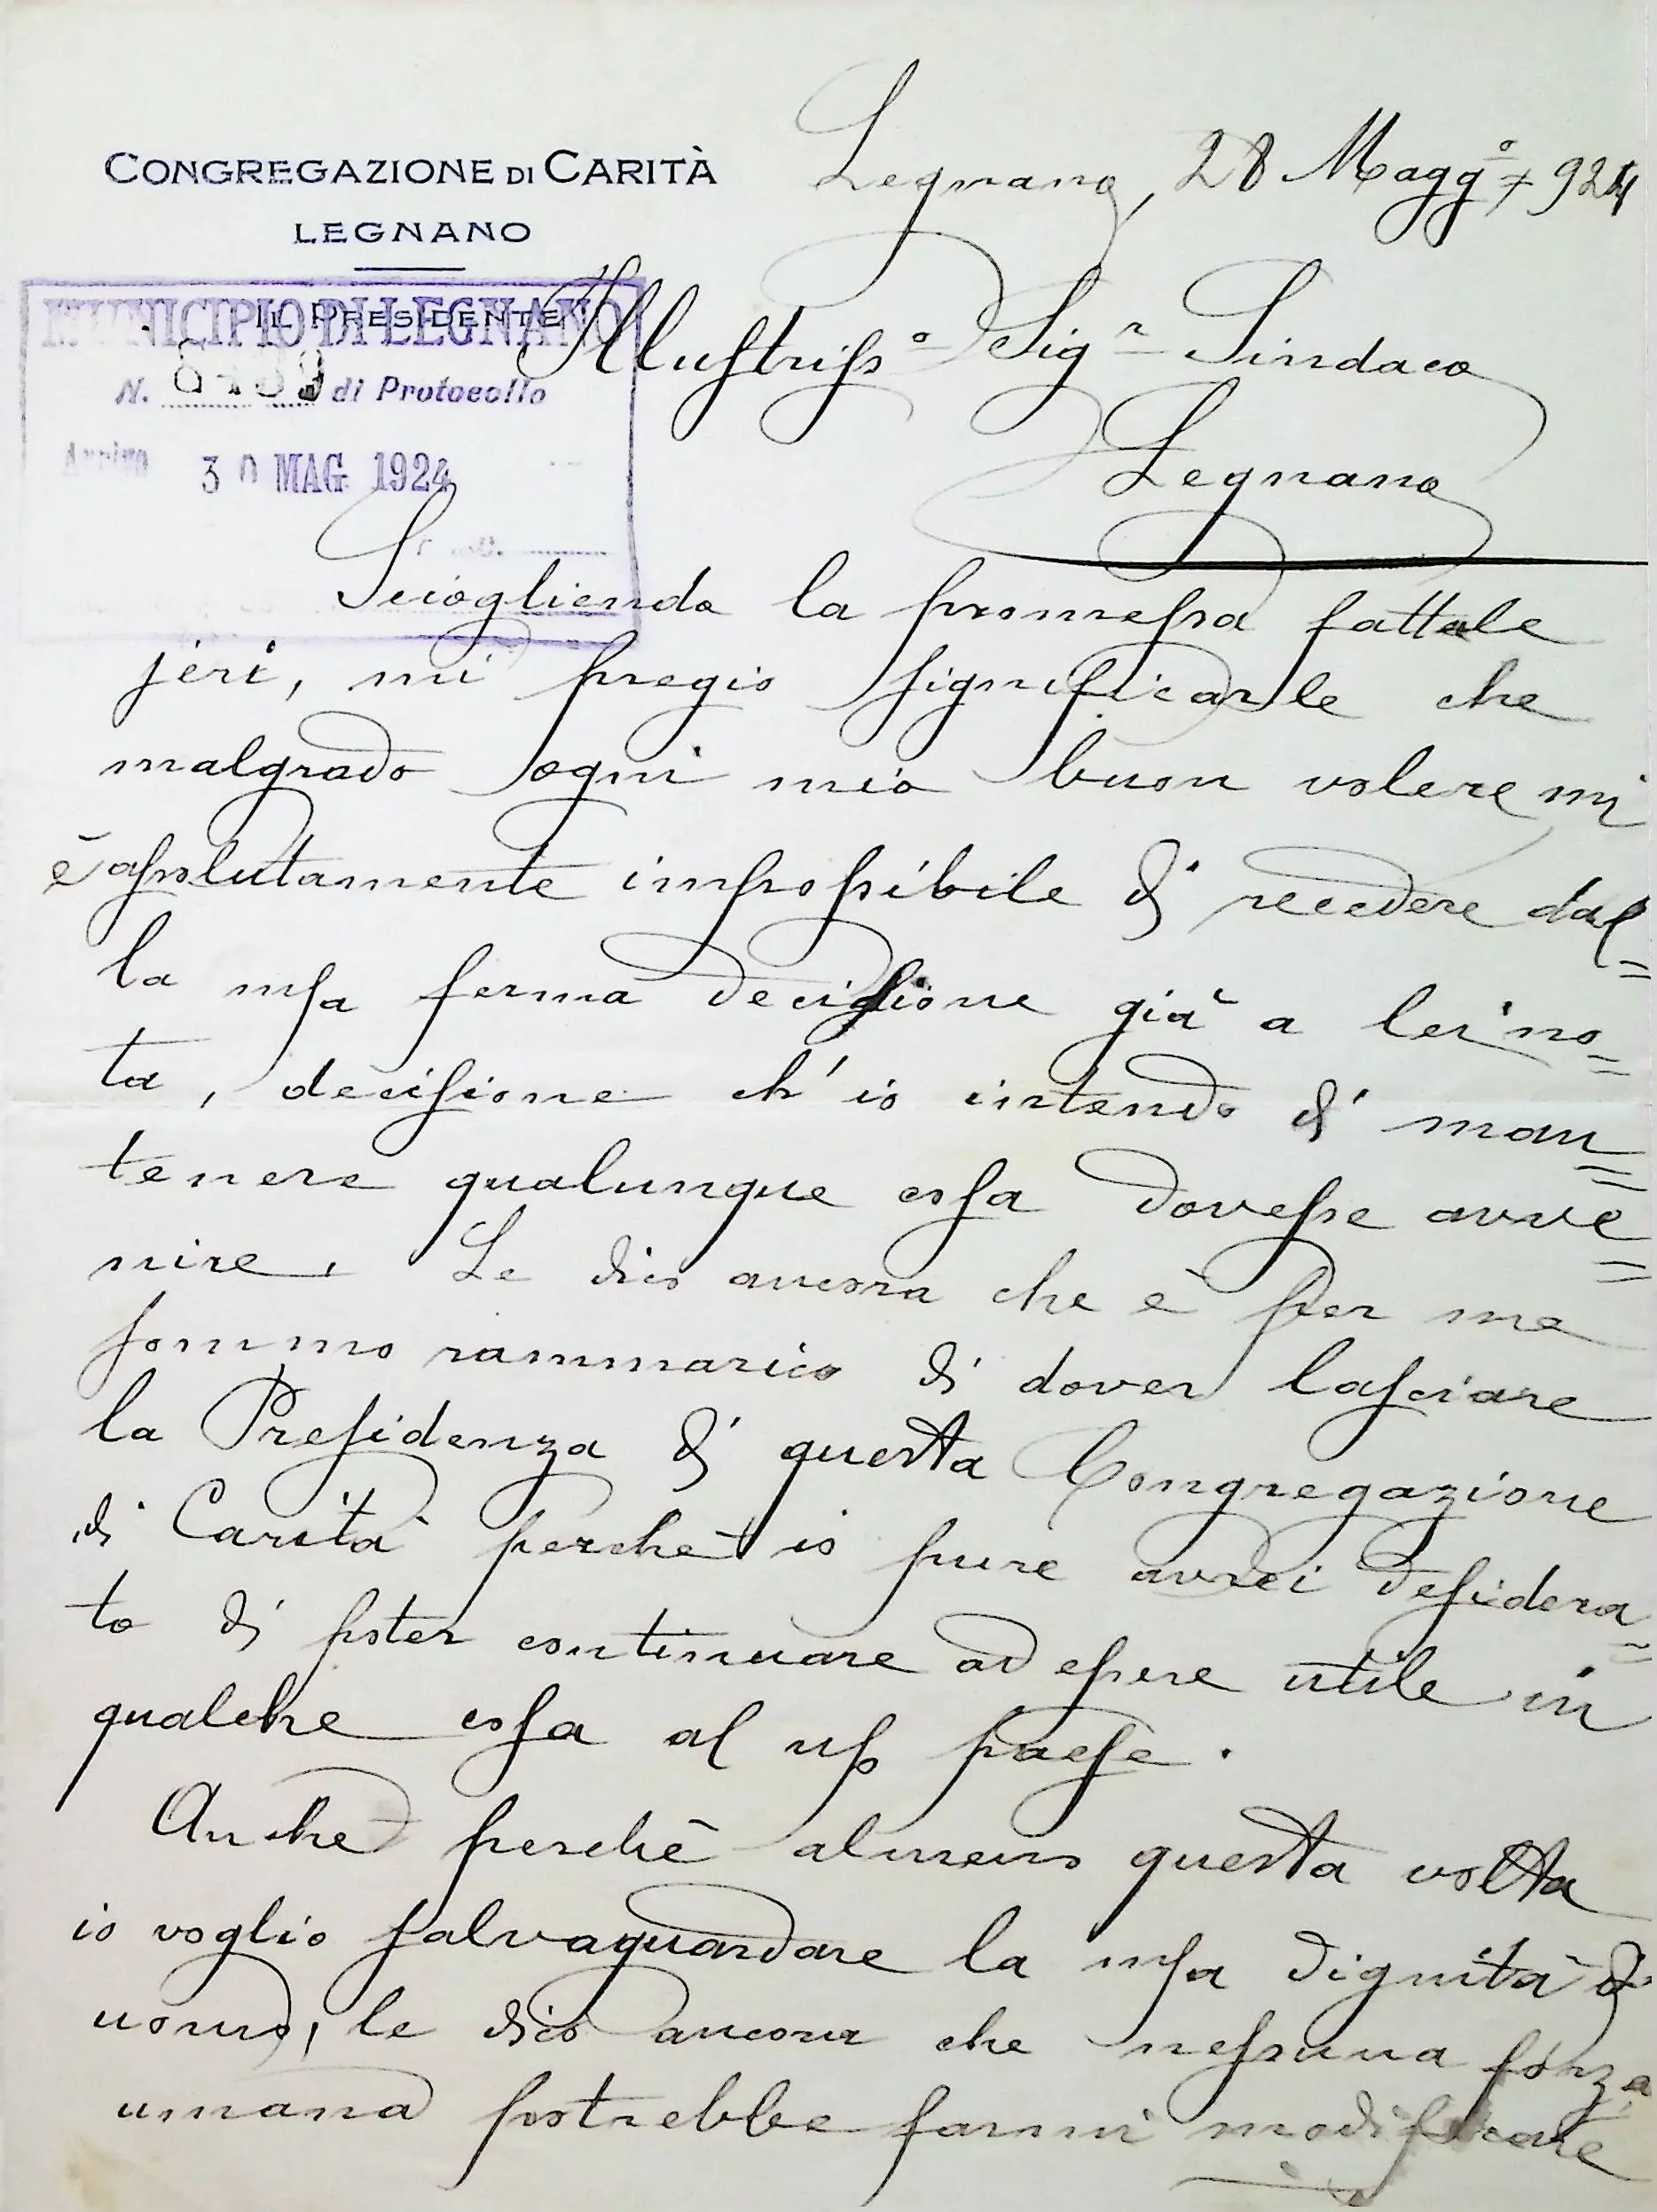 CONGREGAZIONE DI CARITÀ
LEGNANO
IL PRESIDENTE
Legnano, 28 Magg.º 924
MUNICIPIO DI LEGNANO
N. di Protocollo
Arrivo 30 MAG 1924
Illustrissº Sigr Sindaco
Legnano
Sciogliendo la promessa fattale
jeri, mi pregio significarle che
malgrado ogni mio buon volere mi
è assolutamente impossibile di recedere dal=
la mia ferma decisione già a lei no=
ta, decisione ch'io intendo di man=
tenere qualunque cosa dovesse avve=
nire. Le dico ancora che è per me
sommo rammarico di dover lasciare
la Presidenza di questa Congregazione
di Carità perchè io pure avrei desidera=
to di poter continuare ad essere utile in
qualche cosa al mio paese.
Anche perchè almeno questa volta
io voglio salvaguardare la mia dignità di
uomo, le dico ancora che nessuna forza
umana potrebbe farmi modificare